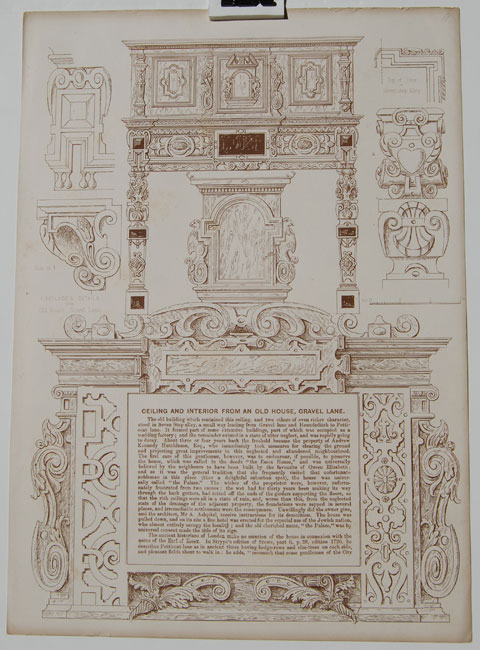 CEILING AND INTERIOR FROM AN OLD HOUSE, GRAVEL LANE.
The old building which contained this ceiling, and two others of even richer character,
stood in Seven Step alley, a small way leading from Gravel lane and Houndsditch to Petti-
coat lane. It formed part of some extensive buildings, part of which was occupied as a
wadding factory; and the remainder existed in a state of utter neglect, and was rapidly going
to decay. About three or four years back the freehold became the property of Andrew
Kennedy Hutchison, Esq., who immediately took measures for clearing the ground
and projecting great improvements in this neglected and abandoned neighbourhood.
The first wish of this gentleman, however, was to endeavour, if possible, to preserve
the house, which was called in the deeds "the Essex House," and was universally
believed by the neighbours to have been built by the favourite of Queen Elizabeth;
and as it was the general tradition that she frequently visited that unfortunate
nobleman in this place (then a delightful suburban spot), the house was univer-
sally called "the Palace." The wishes of the proprietor were, however, unfor-
tunately frustrated from two causes: the wet had for thirty years been making its way
through the back gutters, had rotted off the ends of the girders supporting the floors, so
that the rich ceilings were all in a state of ruin, and, worse than this, from the neglected
state of the drainage of the adjacent property, the foundations were sapped in several
places, and irremediable settlements were the consequence. Unwillingly did the owner give,
and the architect, Mr. A. Ashpitel, receive instructions for its demolition. The house was
pulled down, and on its site a fine hotel was erected for the especial use of the Jewish nation,
who almost entirely occupy the locality; and the old cherished name, "the Palace," was by
universal consent made the title of its sign.
The ancient historians of London make no mention of the house in connexion with the
name of the Earl of Essex. In Strype's edition of Stowe, part ii. p. 28, edition 1720, he
describes Petticoat lane as in ancient times having hedgerows and elm-trees on each side,
and pleasant fields about to walk in: he adds, "insomuch that some gentlemen of the City